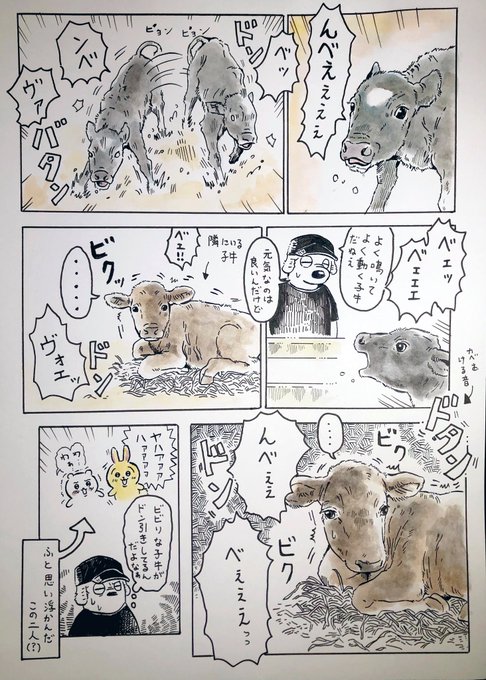 んべえぇぇぇぇ
ベッ
ドン
ピョン
ピョン
ンベ
ヴァ
バタン
ベェッ
ベェエエ
よく鳴いて
よく動く子牛
だねえ
元気なのは
良いんだけど
カベを
ける音
隣にいる
子牛
ベェ!!
ビクッ
・・・・
ヴォエッ
ドン
ドタン
・・・
ビク
んべええ
ドン
ビク
べえええっっ
ヤハアァァハアァァァ
わぁっ
ビビリな子牛が
ドン引きしてるん
だよなぁ
ふと思い浮かんだ
この二人(?)